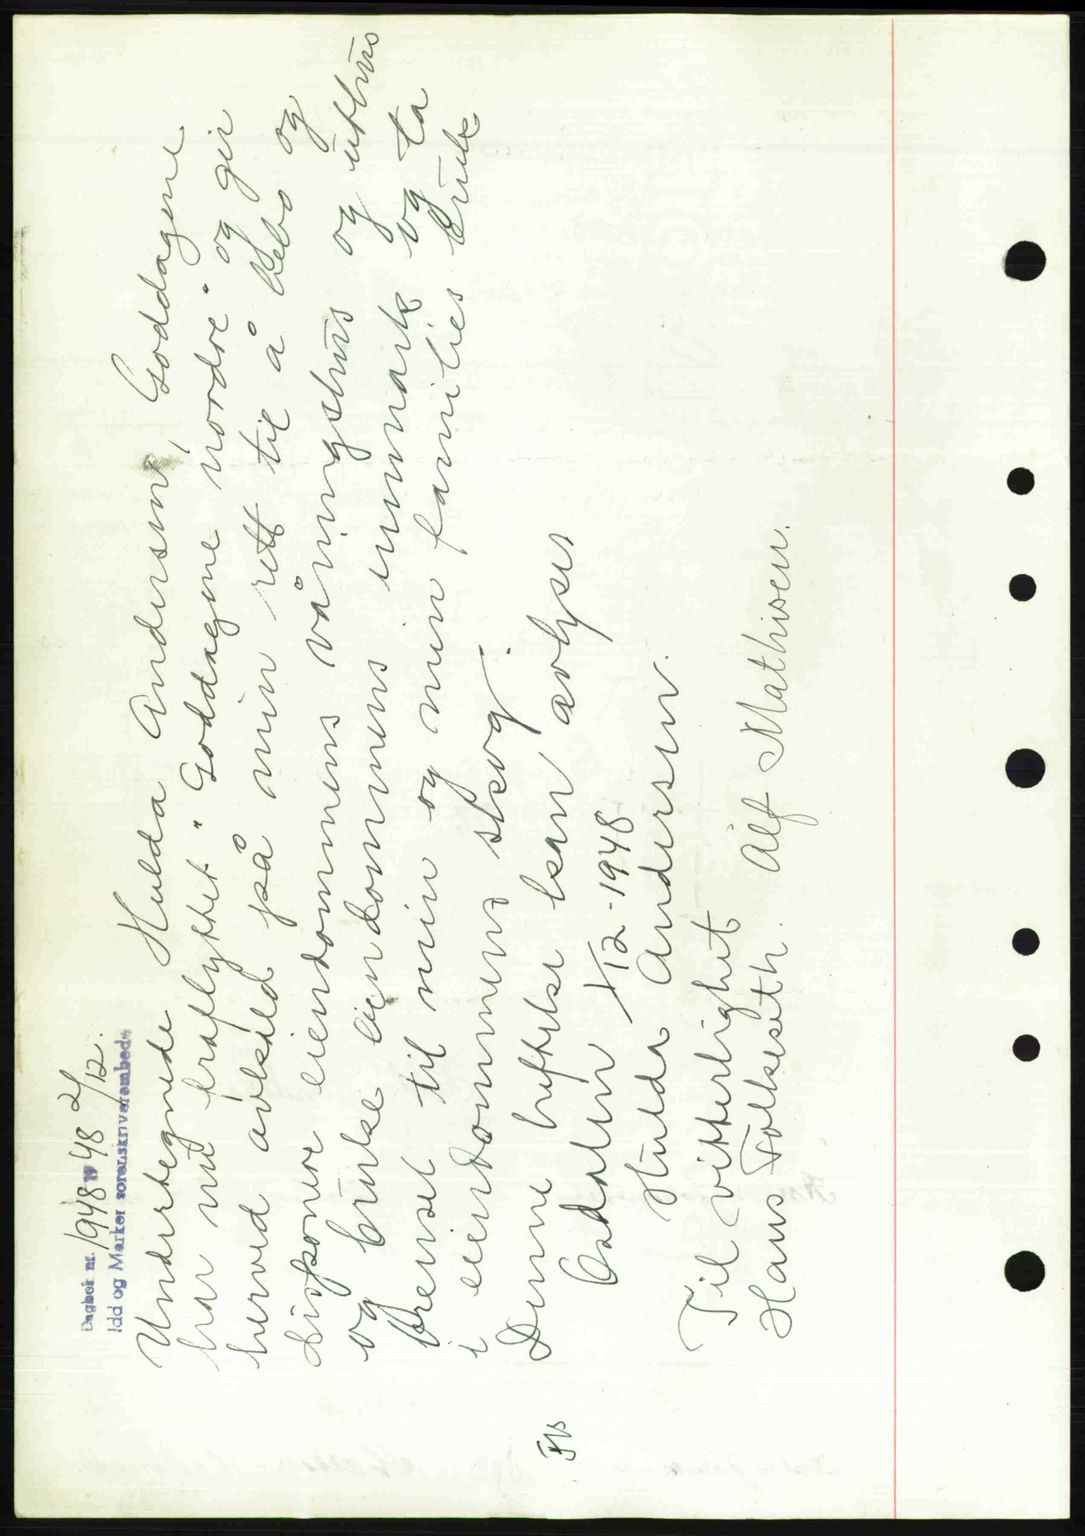 Dagbok nr. 1948 19 48 2/12.
Idd og Marker sorenskriverembede
Undertegnede Hulda Andersen, Goddagene
har nu fraflyttet "Goddagene nordre" og gir
herved avkald på min rett til å bebo og
disponere eiendommens våningshus og uthus
og bruke eiendommens innmark og ta
brensel til min og min families bruk
i eiendommens skog.
Denne heftelse kan avlyses
1/12-1948
Hulda Andersen.
Til vitterlighet
Hans Folkeseth. Alf Mathisen.